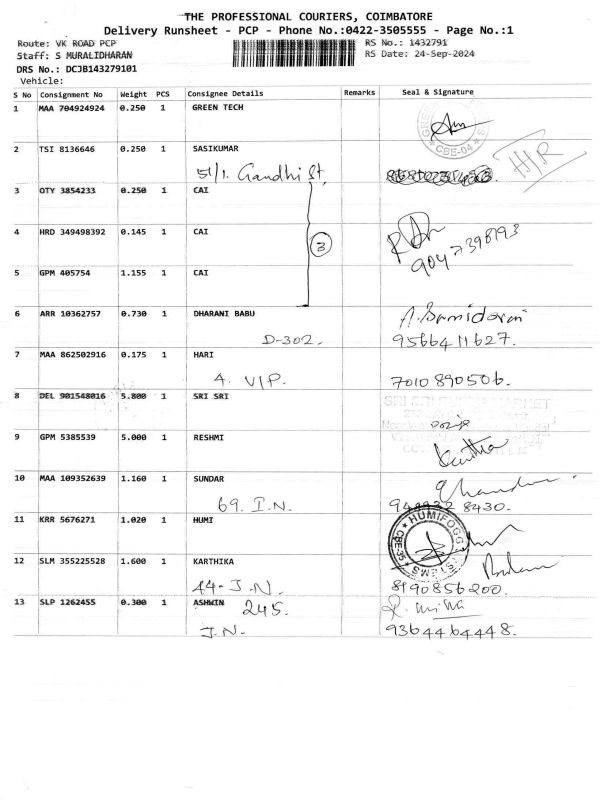 THE PROFESSIONAL COURIERS, COIMBATORE
Delivery Runsheet - PCP - Phone No.:0422-3505555 - Page No.:1
Route: VK ROAD PCP RS No.: 1432791
Staff: S MURALIDHARAN RS Date: 24-Sep-2024
DRS No.: DCJB143279101
Vehicle:
S No Consignment No Weight PCS Consignee Details Remarks Seal & Signature
1 MAA 704924924 0.250 1 GREEN TECH
CBE-04
2 TSI 8136646 0.250 1 SASIKUMAR
51/1. Gandhi St, H/R
3 OTY 3854233 0.250 1 CAI
4 HRD 349498392 0.145 1 CAI
3 9047398193
5 GPM 405754 1.155 1 CAI
6 ARR 10362757 0.730 1 DHARANI BABU
D-302. 9566411627.
7 MAA 862502916 0.175 1 HARI
4. VIP. 7010890506.
8 DEL 901548016 5.800 1 SRI SRI
9 GPM 5385539 5.000 1 RESHMI
10 MAA 109352639 1.160 1 SUNDAR
69. I.N. 8430.
11 KRR 5676271 1.020 1 HUMI
HUMIFOGG SYSTEMS CBE-35
12 SLM 355225528 1.600 1 KARTHIKA
44- J.N. 8190856200.
13 SLP 1262455 0.300 1 ASHWIN 245.
J.N. 9364464448.